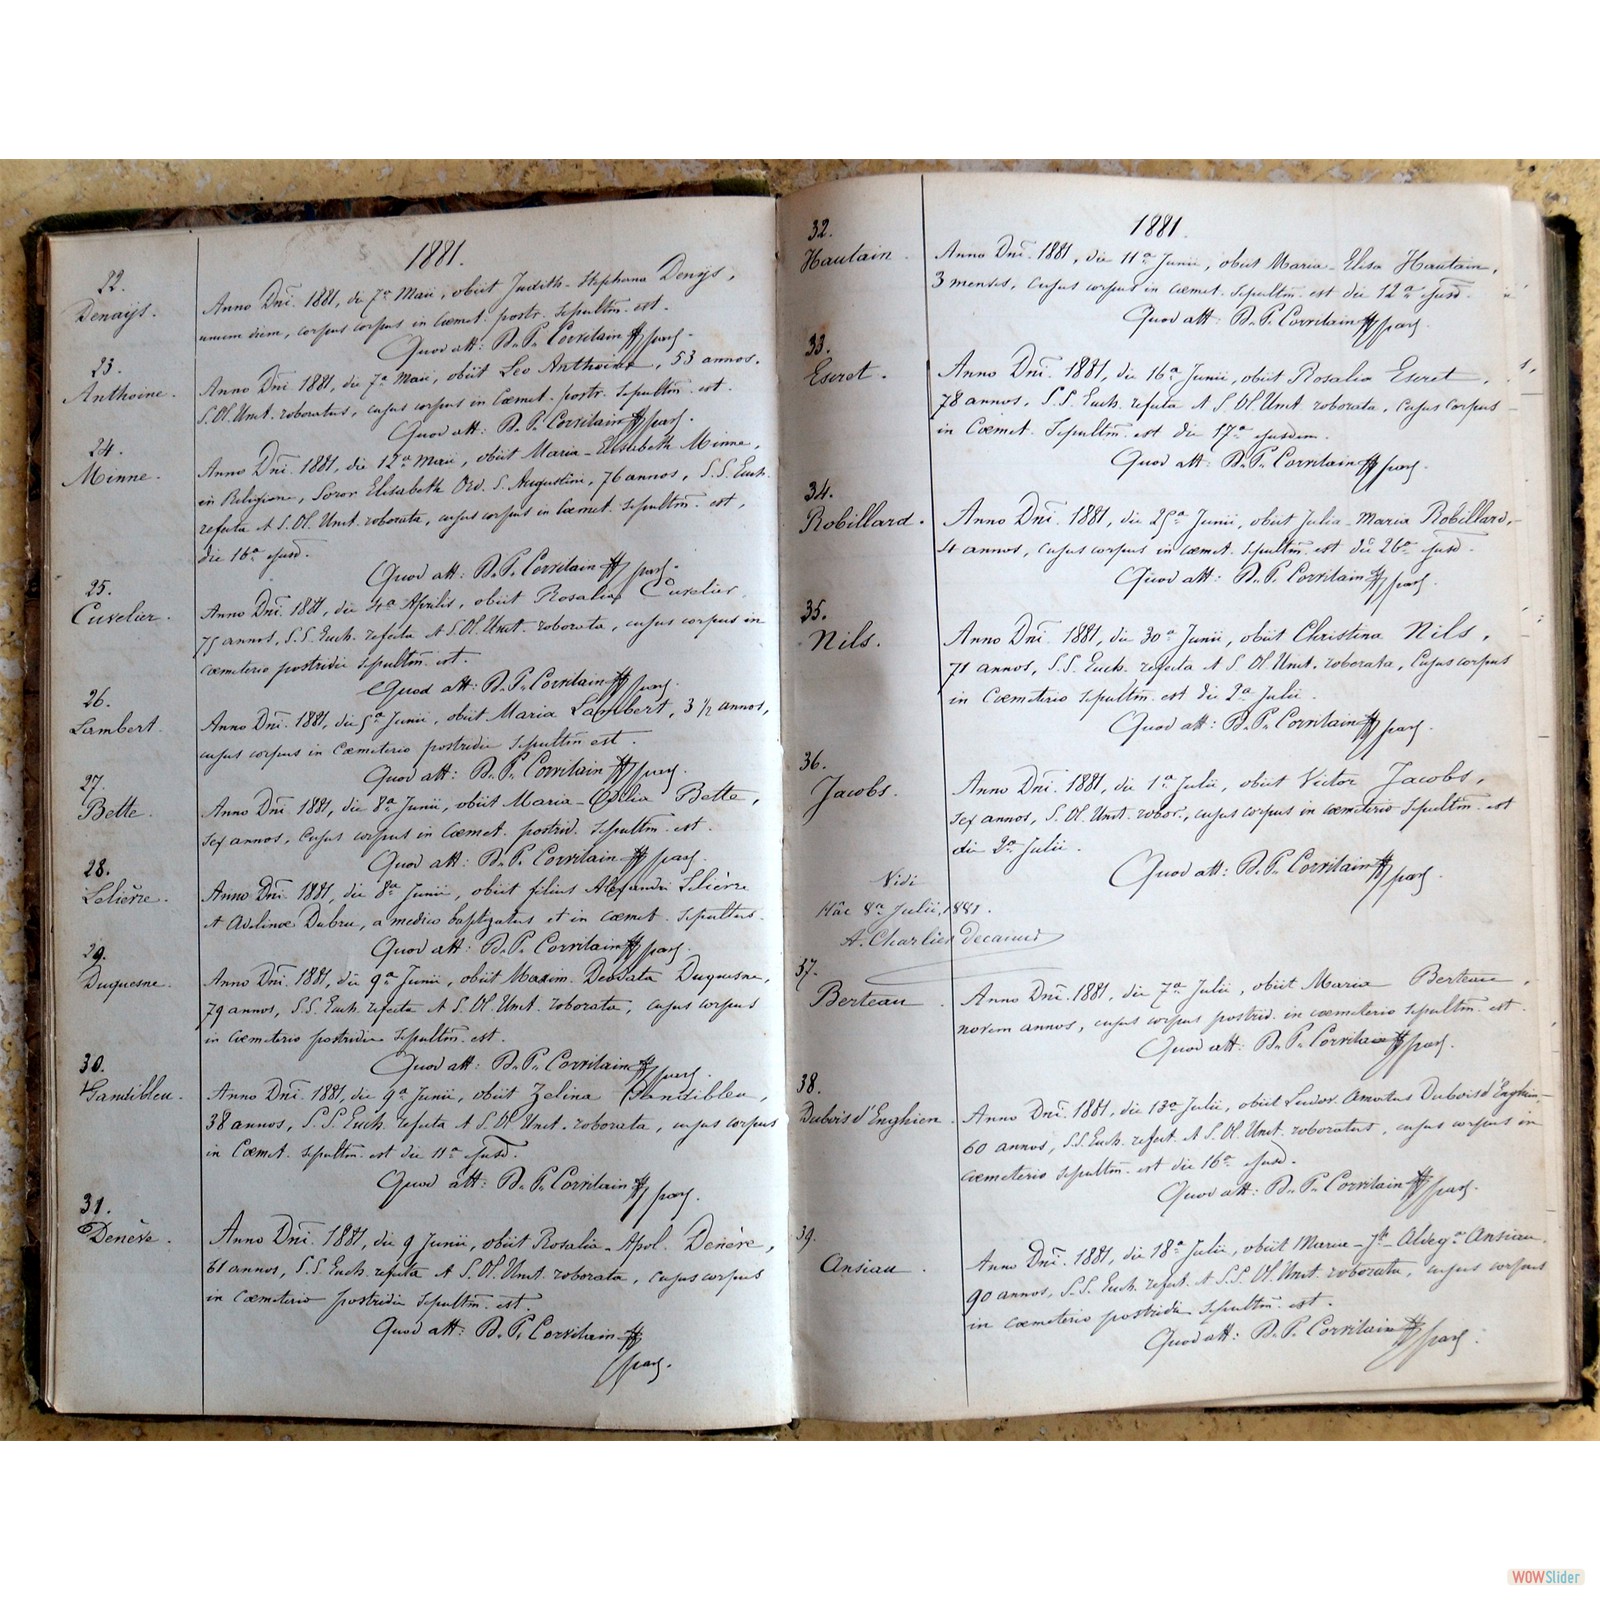 1881.
22.
Denaijs.
Anno Dni. 1881, die 7a Maii, obiit Judith-Stephana Denijs,
unum diem, corpus in Cœmet. postr. Sepultm. est.
Quod att: D. P. Corvilain par.
23.
Anthoine.
Anno Dni 1881, die 7a Maii, obiit Leo Anthoine, 53 annos.
S. Ol. Unct. roboratus, cujus corpus in Cœmet. postr. Sepultm. est.
Quod att: D. P. Corvilain par.
24.
Minne.
Anno Dni. 1881, die 12a Maii, obiit Maria-Elisabeth Minne,
in Religione, Soror Elisabeth Ord. S. Augustini, 76 annos, S.S. Euch.
refecta et S. Ol. Unct. roborata, cujus corpus in Cœmet. Sepultm. est,
die 16a ejusd.
Quod att: D. P. Corvilain par.
25.
Cuvelier.
Anno Dni. 1881, die 4a Aprilis, obiit Rosalia Cuvelier,
75 annos, S.S. Euch. refecta et S. Ol. Unct. roborata, cujus corpus in
cœmeterio postridie Sepultm. est.
Quod att: D. P. Corvilain par.
26.
Lambert.
Anno Dni. 1881, die 5a Junii, obiit Maria Lambert, 3 1/2 annos,
cujus corpus in Cœmeterio postridie Sepultm est.
Quod att: D. P. Corvilain par.
27.
Bette.
Anno Dni. 1881, die 8a Junii, obiit Maria-Odilia Bette,
sex annos, cujus corpus in Cœmet. postrid. Sepultm. est.
Quod att: D. P. Corvilain par.
28.
Lelièvre.
Anno Dni. 1881, die 8a Junii, obiit filius Alexandri Lelièvre
et Adelinæ Dubru, a medico baptizatus et in cœmet. Sepultus.
Quod att: D. P. Corvilain par.
29.
Duquesne.
Anno Dni. 1881, die 9a Junii, obiit Maxim. Deodata Duquesne,
79 annos, S.S. Euch. refecta et S. Ol. Unct. roborata, cujus corpus
in Cœmeterio postridie Sepultm. est.
Quod att: D. P. Corvilain par.
30.
Gandibleu.
Anno Dni. 1881, die 9a Junii, obiit Zelina Gandibleu,
38 annos, S.S. Euch. refecta et S. Ol. Unct. roborata, cujus corpus
in Cœmet. Sepultm. est die 11a ejusd.
Quod att: D. P. Corvilain par.
31.
Denève.
Anno Dni. 1881, die 9 Junii, obiit Rosalia-Apol. Denève,
61 annos, S.S. Euch. refecta et S. Ol. Unct. roborata, cujus corpus
in cœmeterio postridie Sepultm. est.
Quod att: D. P. Corvilain
par.
1881.
32.
Hautain.
Anno Dni. 1881, die 11a Junii, obiit Maria-Elisa Hautain,
3 menses, cujus corpus in cœmet. Sepultm. est die 12a ejusd.
Quod att: D. P. Corvilain par.
33.
Escret.
Anno Dni. 1881, die 16a Junii, obiit Rosalia Escret,
78 annos, S.S. Euch. refecta et S. Ol. Unct. roborata, cujus corpus
in Cœmet. Sepultm. est die 17a ejusdem.
Quod att: D. P. Corvilain par.
34.
Robillard.
Anno Dni. 1881, die 25a Junii, obiit Julia-Maria Robillard,
4 annos, cujus corpus in cœmet. Sepultm. est die 26a ejusd.
Quod att: D. P. Corvilain par.
35.
Nils.
Anno Dni. 1881, die 30a Junii, obiit Christina Nils,
71 annos, S.S. Euch. refecta et S. Ol. Unct. roborata, cujus corpus
in Cœmeterio Sepultm. est die 2a Julii.
Quod att: D. P. Corvilain par.
36.
Jacobs.
Anno Dni. 1881, die 1a Julii, obiit Victor Jacobs,
sex annos, S. Ol. Unct. robor., cujus corpus in cœmeterio Sepultm. est
die 2a Julii.
Quod att: D. P. Corvilain par.
Vidi
Hâc 8a Julii, 1881.
A. Charlier Decanus
37.
Berteau.
Anno Dni. 1881, die 7a Julii, obiit Maria Berteau,
novem annos, cujus corpus postrid. in cœmeterio Sepultm. est.
Quod att: D. P. Corvilain par.
38.
Dubois d'Enghien.
Anno Dni. 1881, die 13a Julii, obiit Ludov. Amatus Dubois d'Enghien,
60 annos, S.S. Euch. refect. et S. Ol. Unct. roboratus, cujus corpus in
cœmeterio Sepultm. est die 16a ejusd.
Quod att: D. P. Corvilain par.
39.
Ansiau.
Anno Dni. 1881, die 18a Julii, obiit Mariæ-Jh. Aldega Ansiau.
90 annos, S.S. Euch. refect. et S.S. Ol. Unct. roborata, cujus corpus
in cœmeterio postridie Sepultm. est.
Quod att: D. P. Corvilain par.
WOWSlider